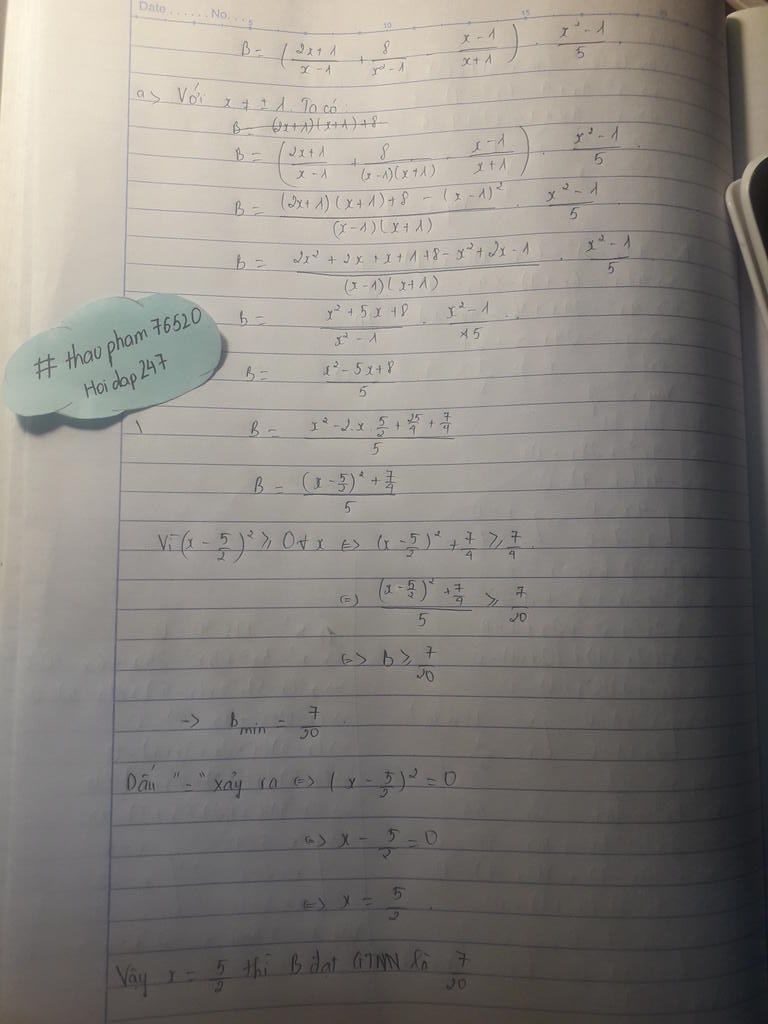 Date ...... No. ...
5 10 15
B = ( (2x+1)/(x-1) + 8/(x²-1) - (x-1)/(x+1) ) . (x²-1)/5
a> Với x ≠ ±1. Ta có:
B = (2x+1)(x+1)+8
B = ( (2x+1)/(x-1) + 8/((x-1)(x+1)) - (x-1)/(x+1) ) . (x²-1)/5
B = ((2x+1)(x+1)+8 - (x-1)²)/((x-1)(x+1)) . (x²-1)/5
B = (2x² + 2x + x + 1 + 8 - x² + 2x - 1)/((x-1)(x+1)) . (x²-1)/5
B = (x² + 5x + 8)/(x² - 1) . (x²-1)/5
B = (x² - 5x + 8)/5
# thaopham76520
Hoidap247
B = (x² - 2.x.5/2 + 25/4 + 7/4)/5
B = ((x - 5/2)² + 7/4)/5
Vì (x - 5/2)² ≥ 0 ∀ x <=> (x - 5/2)² + 7/4 ≥ 7/4
<=> ((x - 5/2)² + 7/4)/5 ≥ 7/20
<=> B ≥ 7/20
-> Bmin = 7/20
Dấu "=" xảy ra <=> (x - 5/2)² = 0
<=> x - 5/2 = 0
<=> x = 5/2.
Vậy x = 5/2 thì B đạt GTNN là 7/20